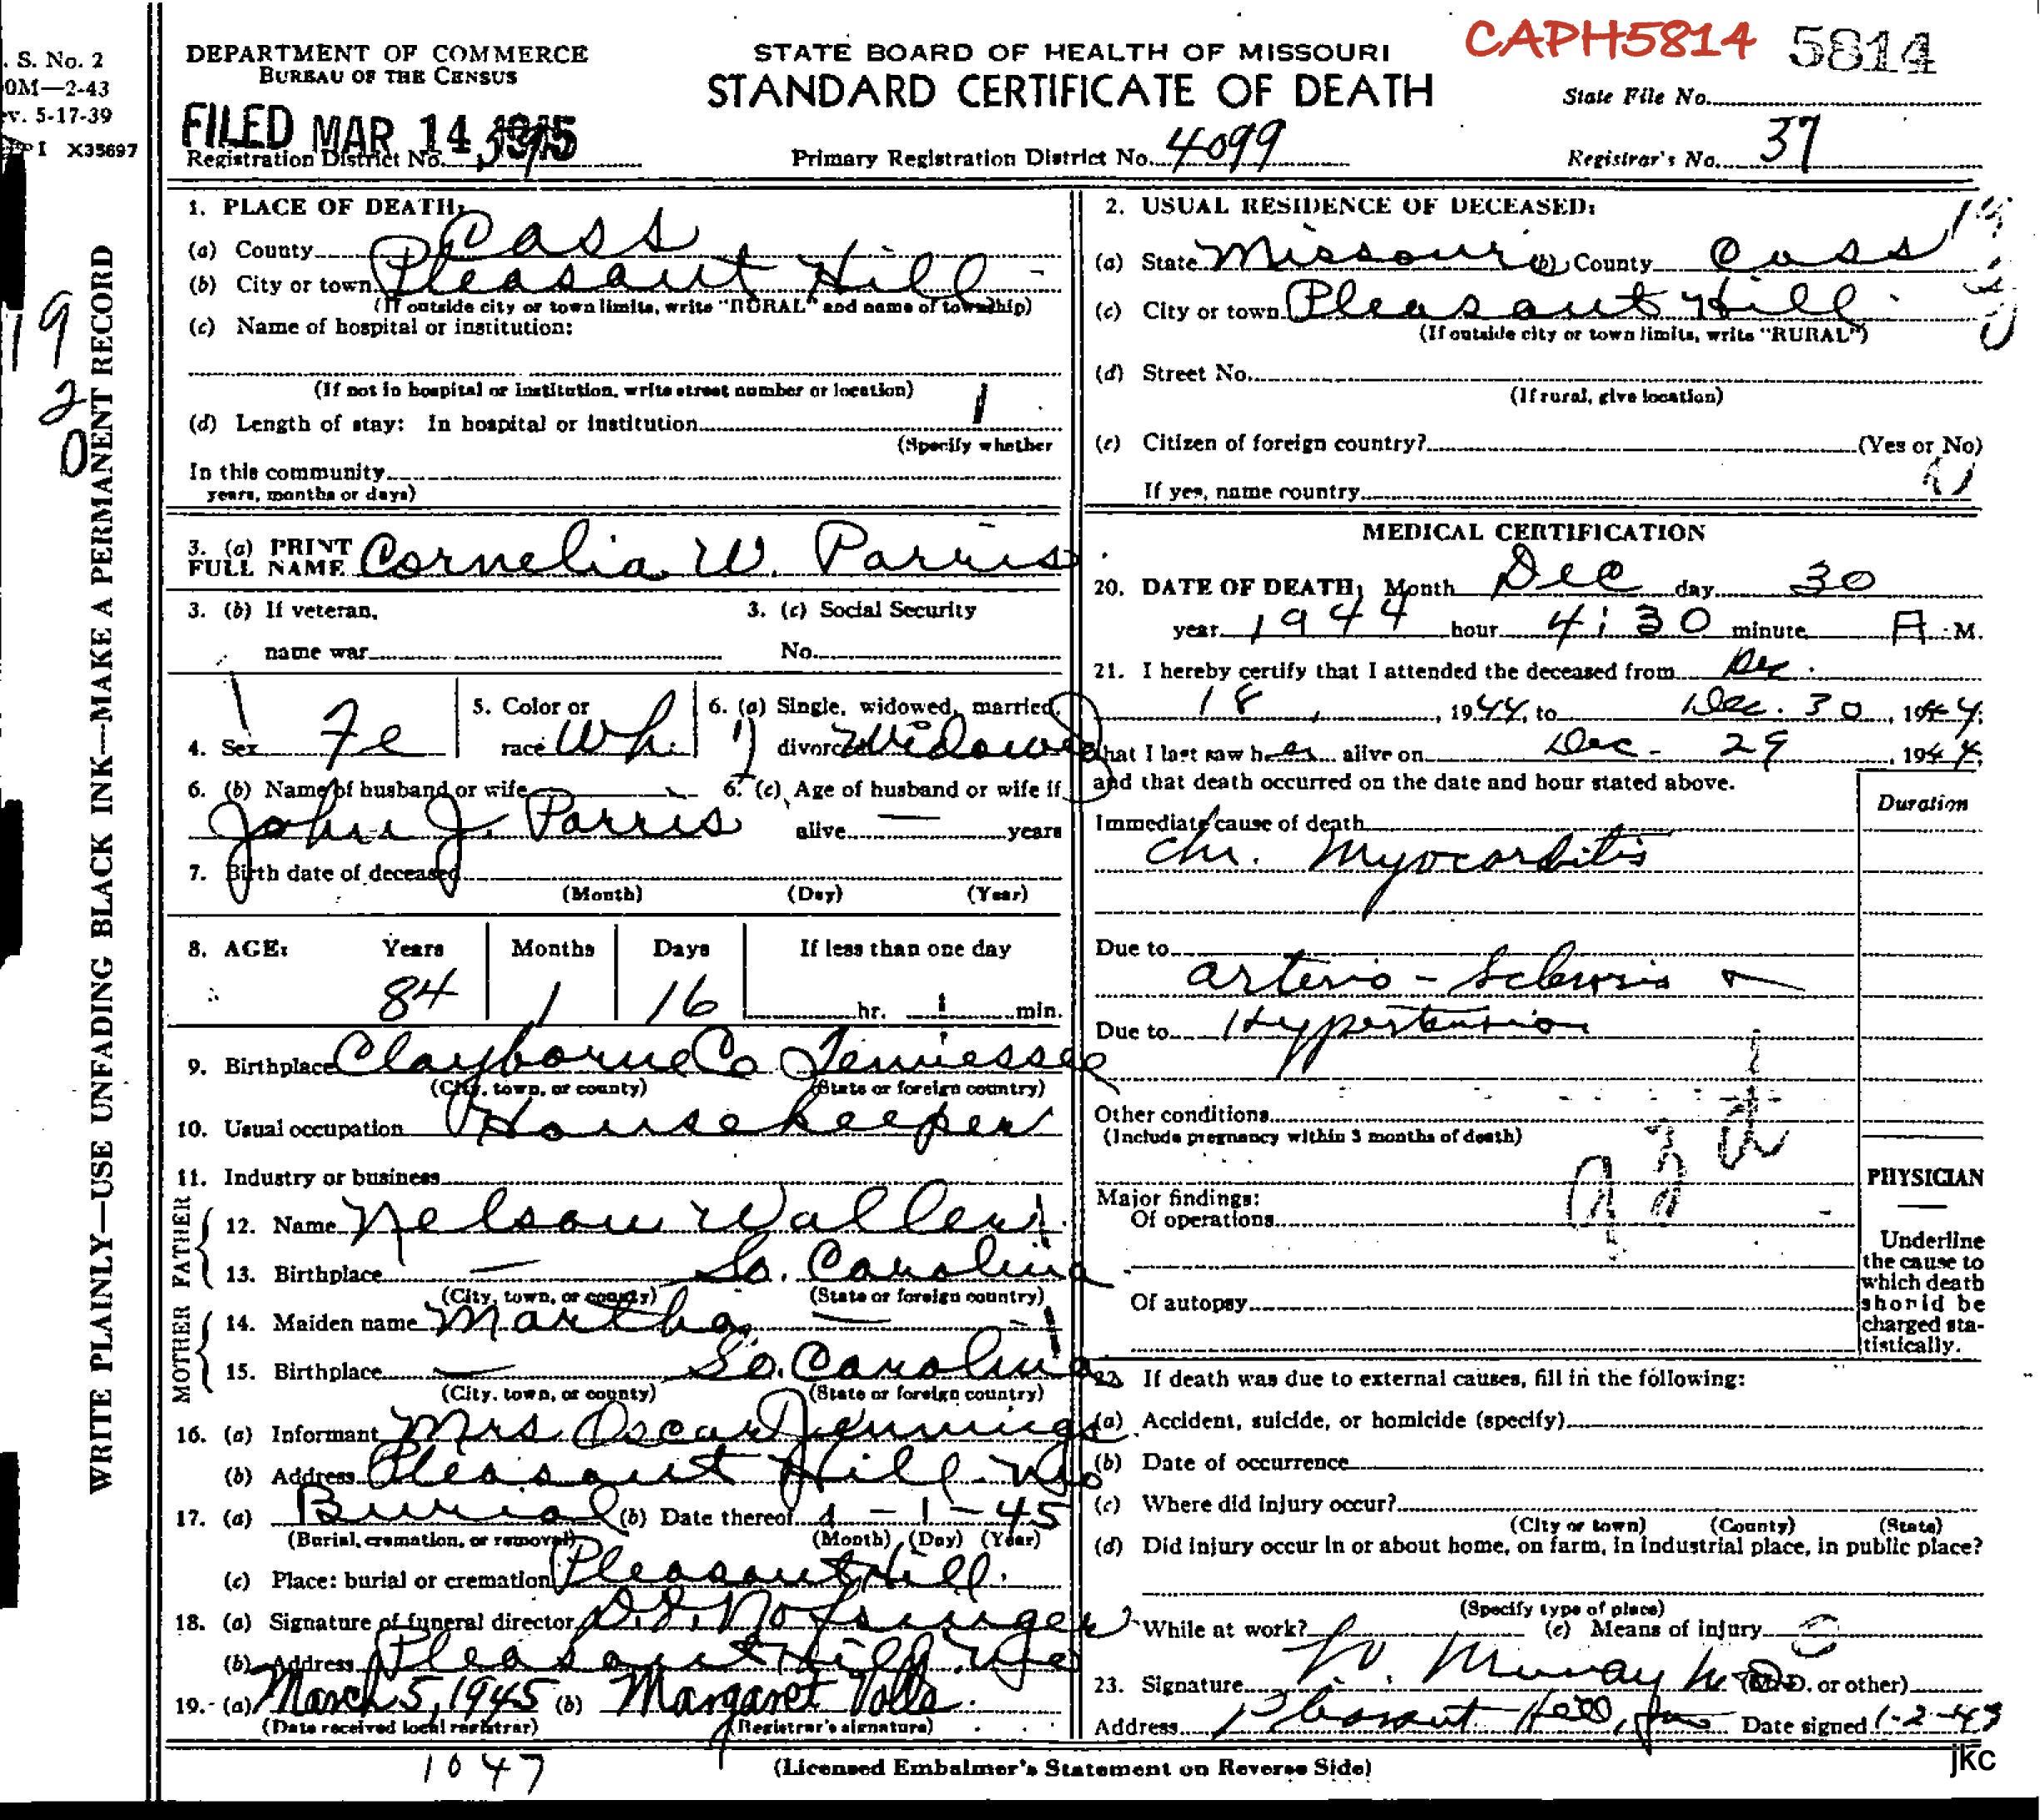 CAPH5814 5814
. S. No. 2
0M—2-43
v. 5-17-39
I X35697
DEPARTMENT OF COMMERCE
BUREAU OF THE CENSUS
STATE BOARD OF HEALTH OF MISSOURI
STANDARD CERTIFICATE OF DEATH
State File No.
FILED MAR 14 1945
Registration District No.
Primary Registration District No. 4099
Registrar's No. 37
WRITE PLAINLY—USE UNFADING BLACK INK—MAKE A PERMANENT RECORD
1. PLACE OF DEATH:
(a) County Cass
(b) City or town Pleasant Hill
(If outside city or town limits, write "RURAL" and name of township)
(c) Name of hospital or institution:
(If not in hospital or institution, write street number or location)
(d) Length of stay: In hospital or institution
(Specify whether
In this community
years, months or days)
2. USUAL RESIDENCE OF DECEASED:
(a) State Missouri (b) County Cass
(c) City or town Pleasant Hill
(If outside city or town limits, write "RURAL")
(d) Street No.
(If rural, give location)
(e) Citizen of foreign country? (Yes or No)
If yes, name country
3. (a) PRINT
FULL NAME Cornelia W. Parris
3. (b) If veteran,
name war
3. (c) Social Security
No.
4. Sex Fe
5. Color or
race Wh.
6. (a) Single, widowed, married,
divorced Widowed
6. (b) Name of husband or wife
John J. Parris
6. (c) Age of husband or wife if
alive — years
7. Birth date of deceased
(Month) (Day) (Year)
8. AGE: Years Months Days If less than one day
84 1 16 hr. min.
9. Birthplace Clayborne Co Tennessee
(City, town, or county) (State or foreign country)
10. Usual occupation Housekeeper
11. Industry or business
FATHER
12. Name Nelson Waller
13. Birthplace — So. Carolina
(City, town, or county) (State or foreign country)
MOTHER
14. Maiden name Martha —
15. Birthplace — So. Carolina
(City, town, or county) (State or foreign country)
16. (a) Informant Mrs Oscar Jennings
(b) Address Pleasant Hill Mo
17. (a) Burial (b) Date thereof 1-1-45
(Burial, cremation, or removal) (Month) (Day) (Year)
(c) Place: burial or cremation Pleasant Hill.
18. (a) Signature of funeral director Nofsinger
(b) Address Pleasant Hill Mo
19. (a) March 5, 1945 (b) Margaret
(Date received local registrar) (Registrar's signature)
MEDICAL CERTIFICATION
20. DATE OF DEATH: Month Dec day 30
year 1944 hour 4:30 minute A M.
21. I hereby certify that I attended the deceased from Dec.
18, 1944, to Dec. 30, 1944;
that I last saw her alive on Dec - 29, 1944;
and that death occurred on the date and hour stated above.
Duration
Immediate cause of death
Chr. Myocarditis
Due to
arterio-sclerosis
Due to Hypertension
Other conditions
(Include pregnancy within 3 months of death)
PHYSICIAN
Major findings:
Of operations
Of autopsy
Underline
the cause to
which death
should be
charged sta-
tistically.
22. If death was due to external causes, fill in the following:
(a) Accident, suicide, or homicide (specify)
(b) Date of occurrence
(c) Where did injury occur?
(City or town) (County) (State)
(d) Did injury occur in or about home, on farm, in industrial place, in public place?
(Specify type of place)
While at work? (e) Means of injury
23. Signature Murray (M.D. or other)
Address Pleasant Hill, Date signed 1-2-45
1047
(Licensed Embalmer's Statement on Reverse Side)
jkc